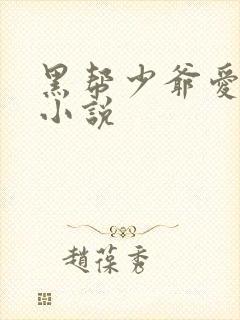 黑帮少爷愛
小說
趙葆秀